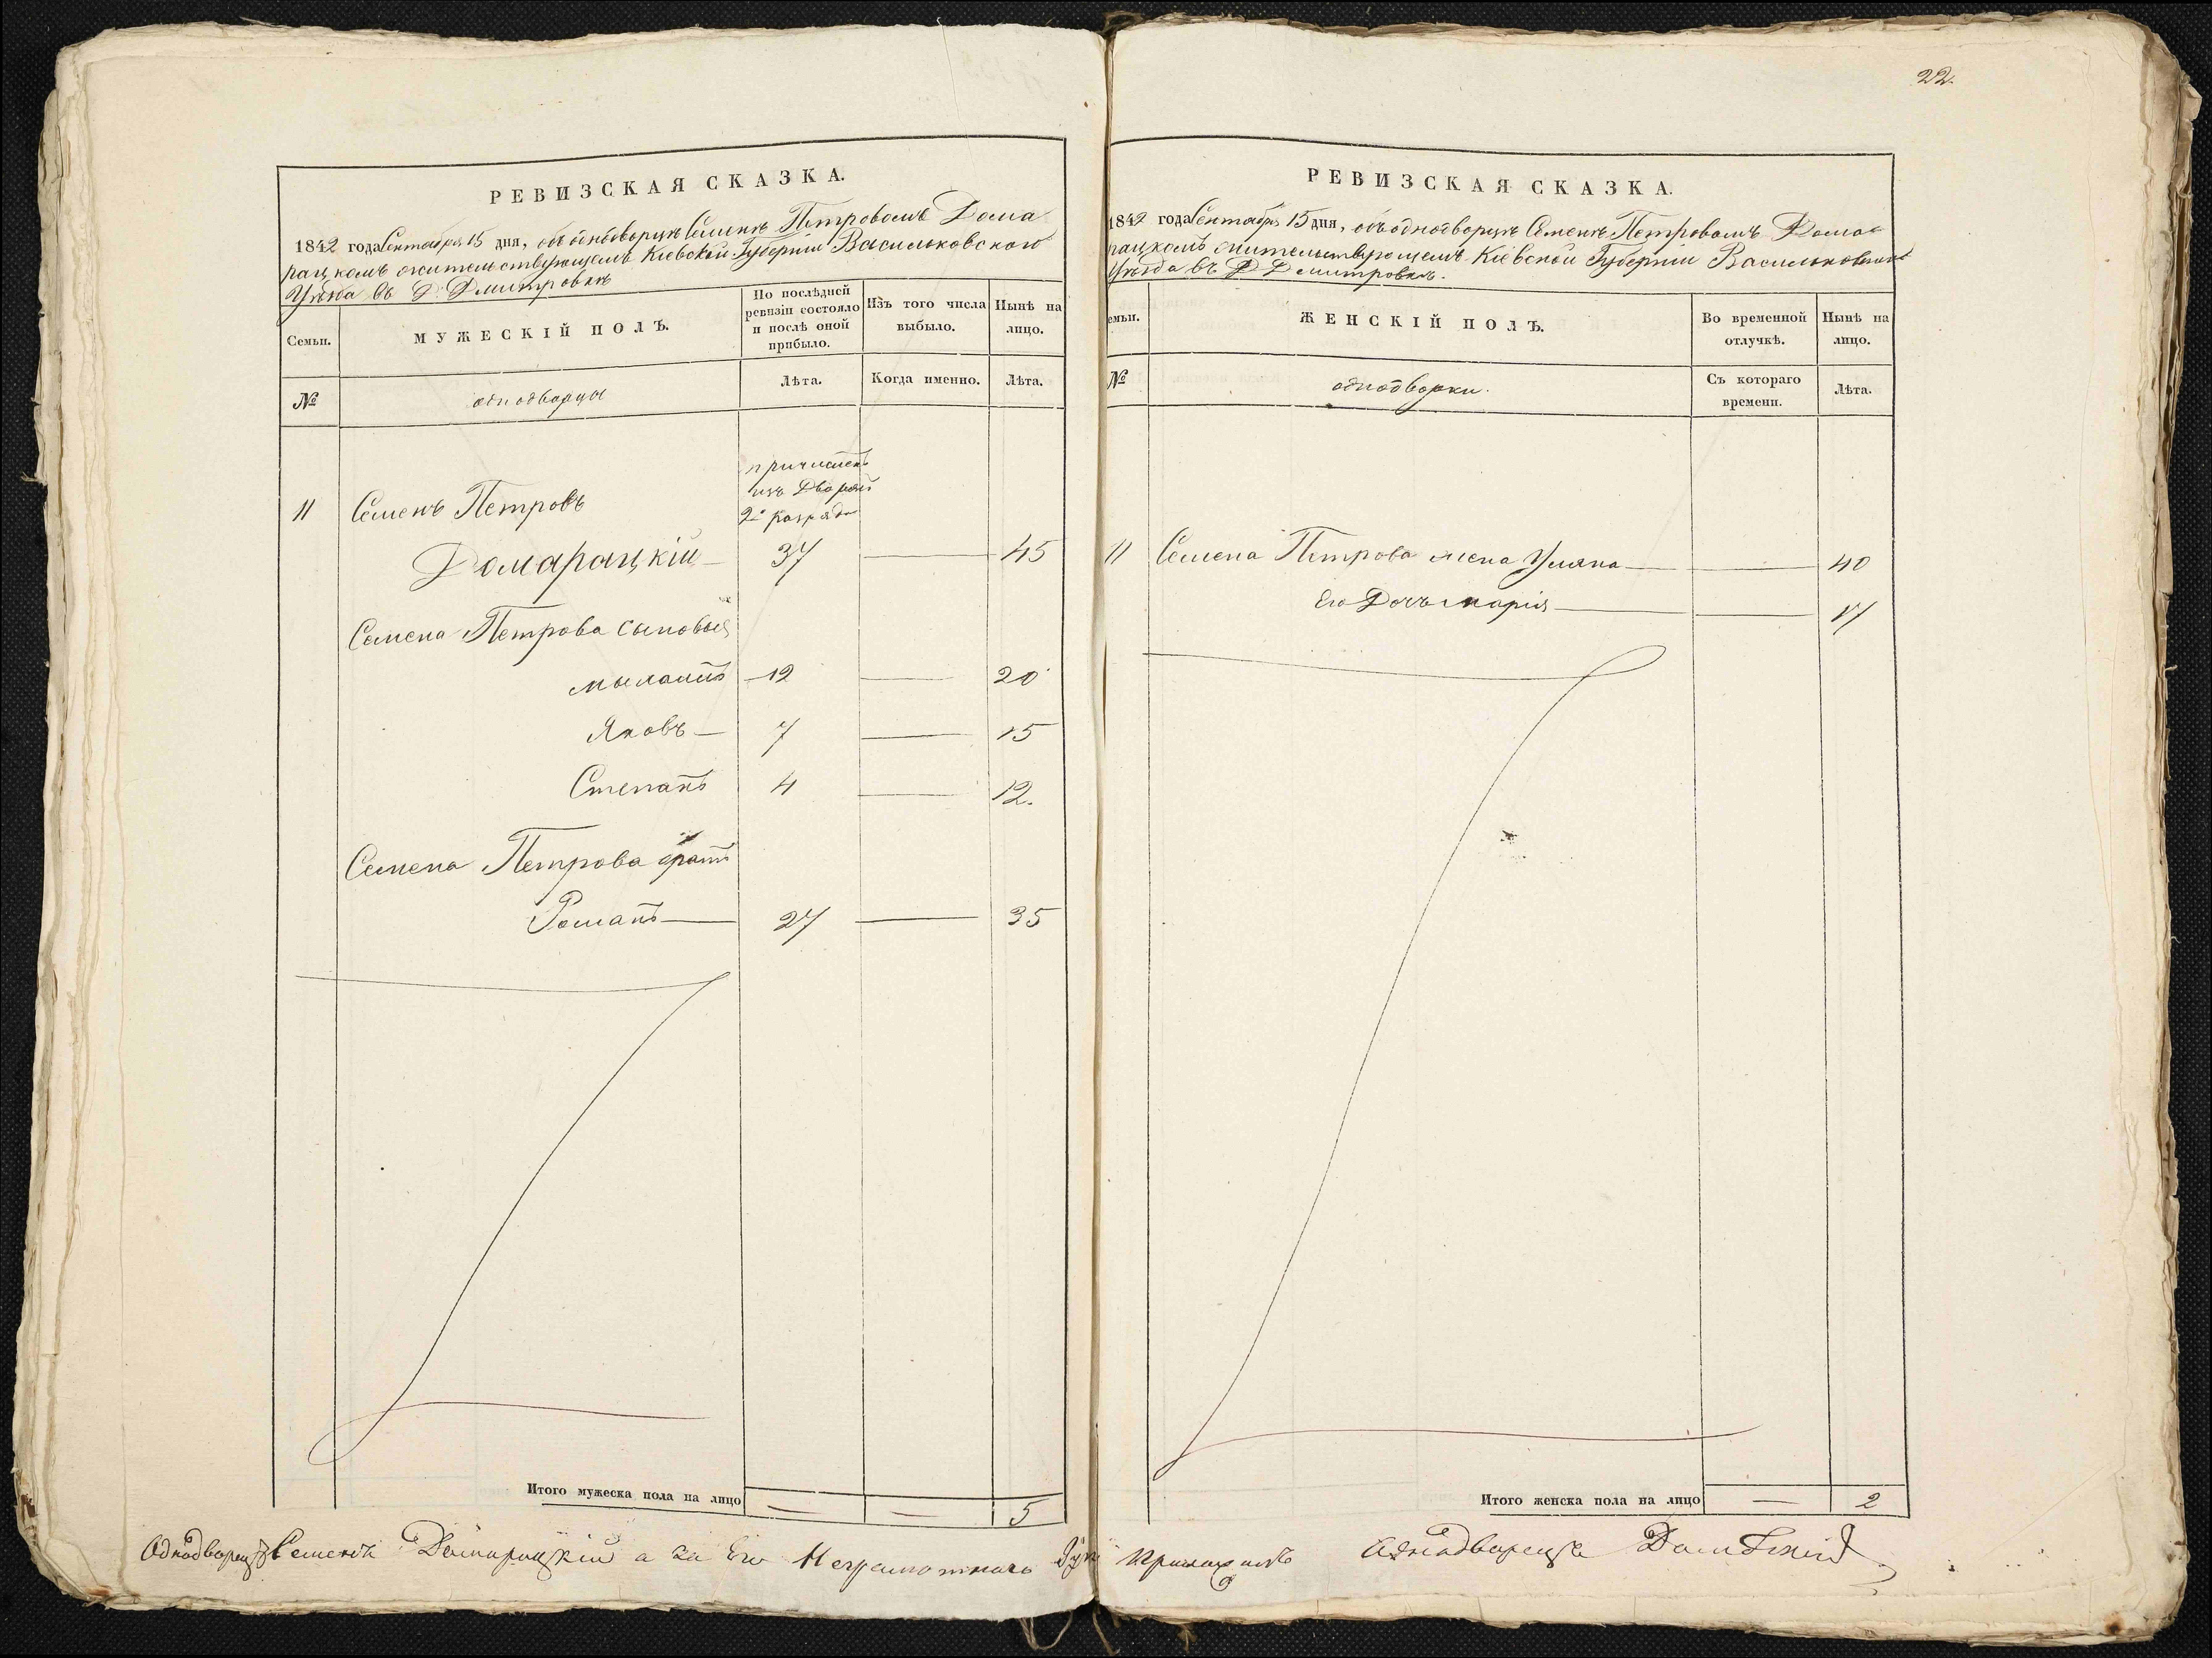 РЕВИЗСКАЯ СКАЗКА.
1842 года Сентября 15 дня, объ однодворцѣ Семенѣ Петровомъ Дома
рацкомъ жительствующемъ Кіевской Губерніи Васильковского
Уѣзда въ Д. Дмитровкѣ
Семьи.
МУЖЕСКІЙ ПОЛЪ.
По послѣдней
ревизіи состояло
и послѣ оной
прибыло.
Изъ того числа
выбыло.
Нынѣ на
лицо.
№
однодворцы
Лѣта.
Когда именно.
Лѣта.
причисленъ
изъ Дворянъ
2го разряда
11 Семенъ Петровъ
Домарацкій 37 — 45
Семена Петрова сыновья
12 — 20
Яковъ — 7 — 15
Степанъ 4 — 12.
Семена Петрова братъ
Романъ — 27 — 35
Итого мужеска пола на лицо — — 5
Однодворецъ Семенъ Домарацкій а за Его Неграмотнаго
22.
РЕВИЗСКАЯ СКАЗКА.
1842 года Сентября 15 дня, объ однодворцѣ Семенѣ Петровомъ Дома
рацкомъ жительствующемъ Кіевской Губерніи Васильковского
Уѣзда въ Д Дмитровкѣ.
емьи.
ЖЕНСКІЙ ПОЛЪ.
Во временной
отлучкѣ.
Нынѣ на
лицо.
№
однодворки.
Съ котораго
времени.
Лѣта.
11 Семена Петрова жена Уляна — — 40
Его Дочь Марія — — 17
Итого женска пола на лицо — 2
однодворецъ